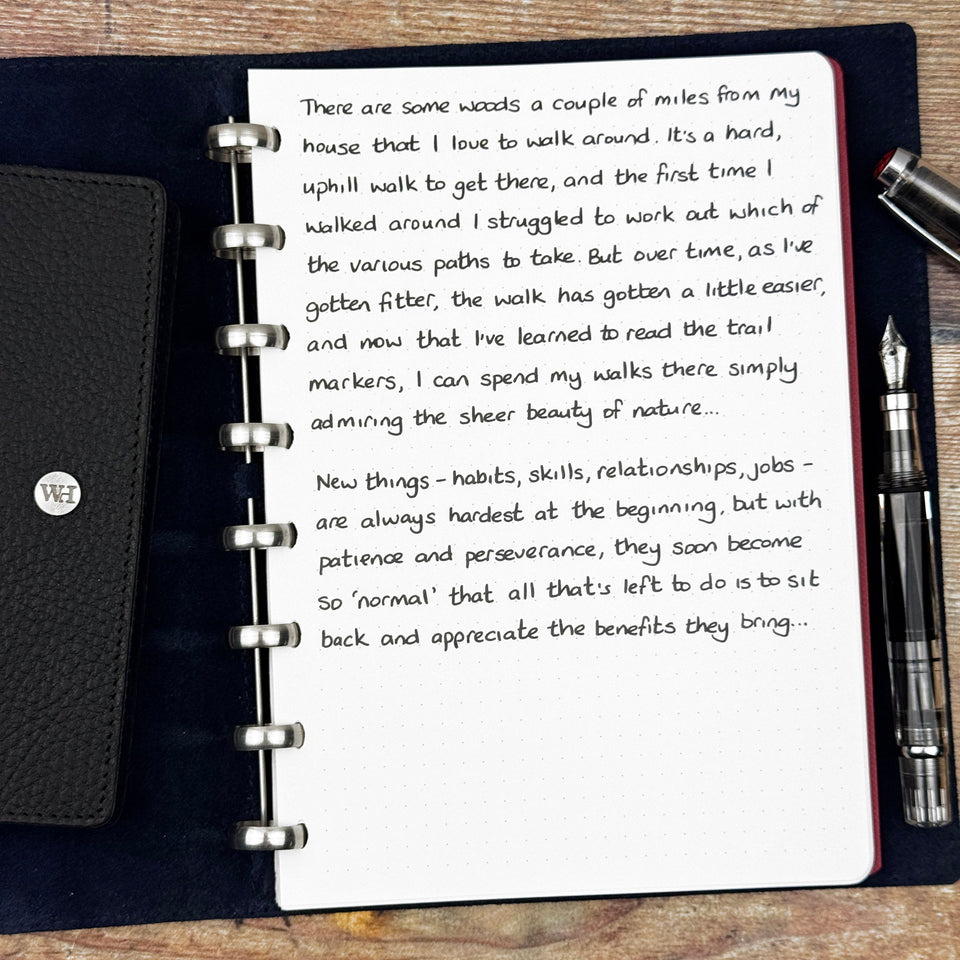 There are some woods a couple of miles from my
house that I love to walk around. It's a hard,
uphill walk to get there, and the first time I
walked around I struggled to work out which of
the various paths to take. But over time, as I've
gotten fitter, the walk has gotten a little easier,
and now that I've learned to read the trail
markers, I can spend my walks there simply
admiring the sheer beauty of nature...
New things - habits, skills, relationships, jobs -
are always hardest at the beginning, but with
patience and perseverance, they soon become
so 'normal' that all that's left to do is to sit
back and appreciate the benefits they bring...
WH